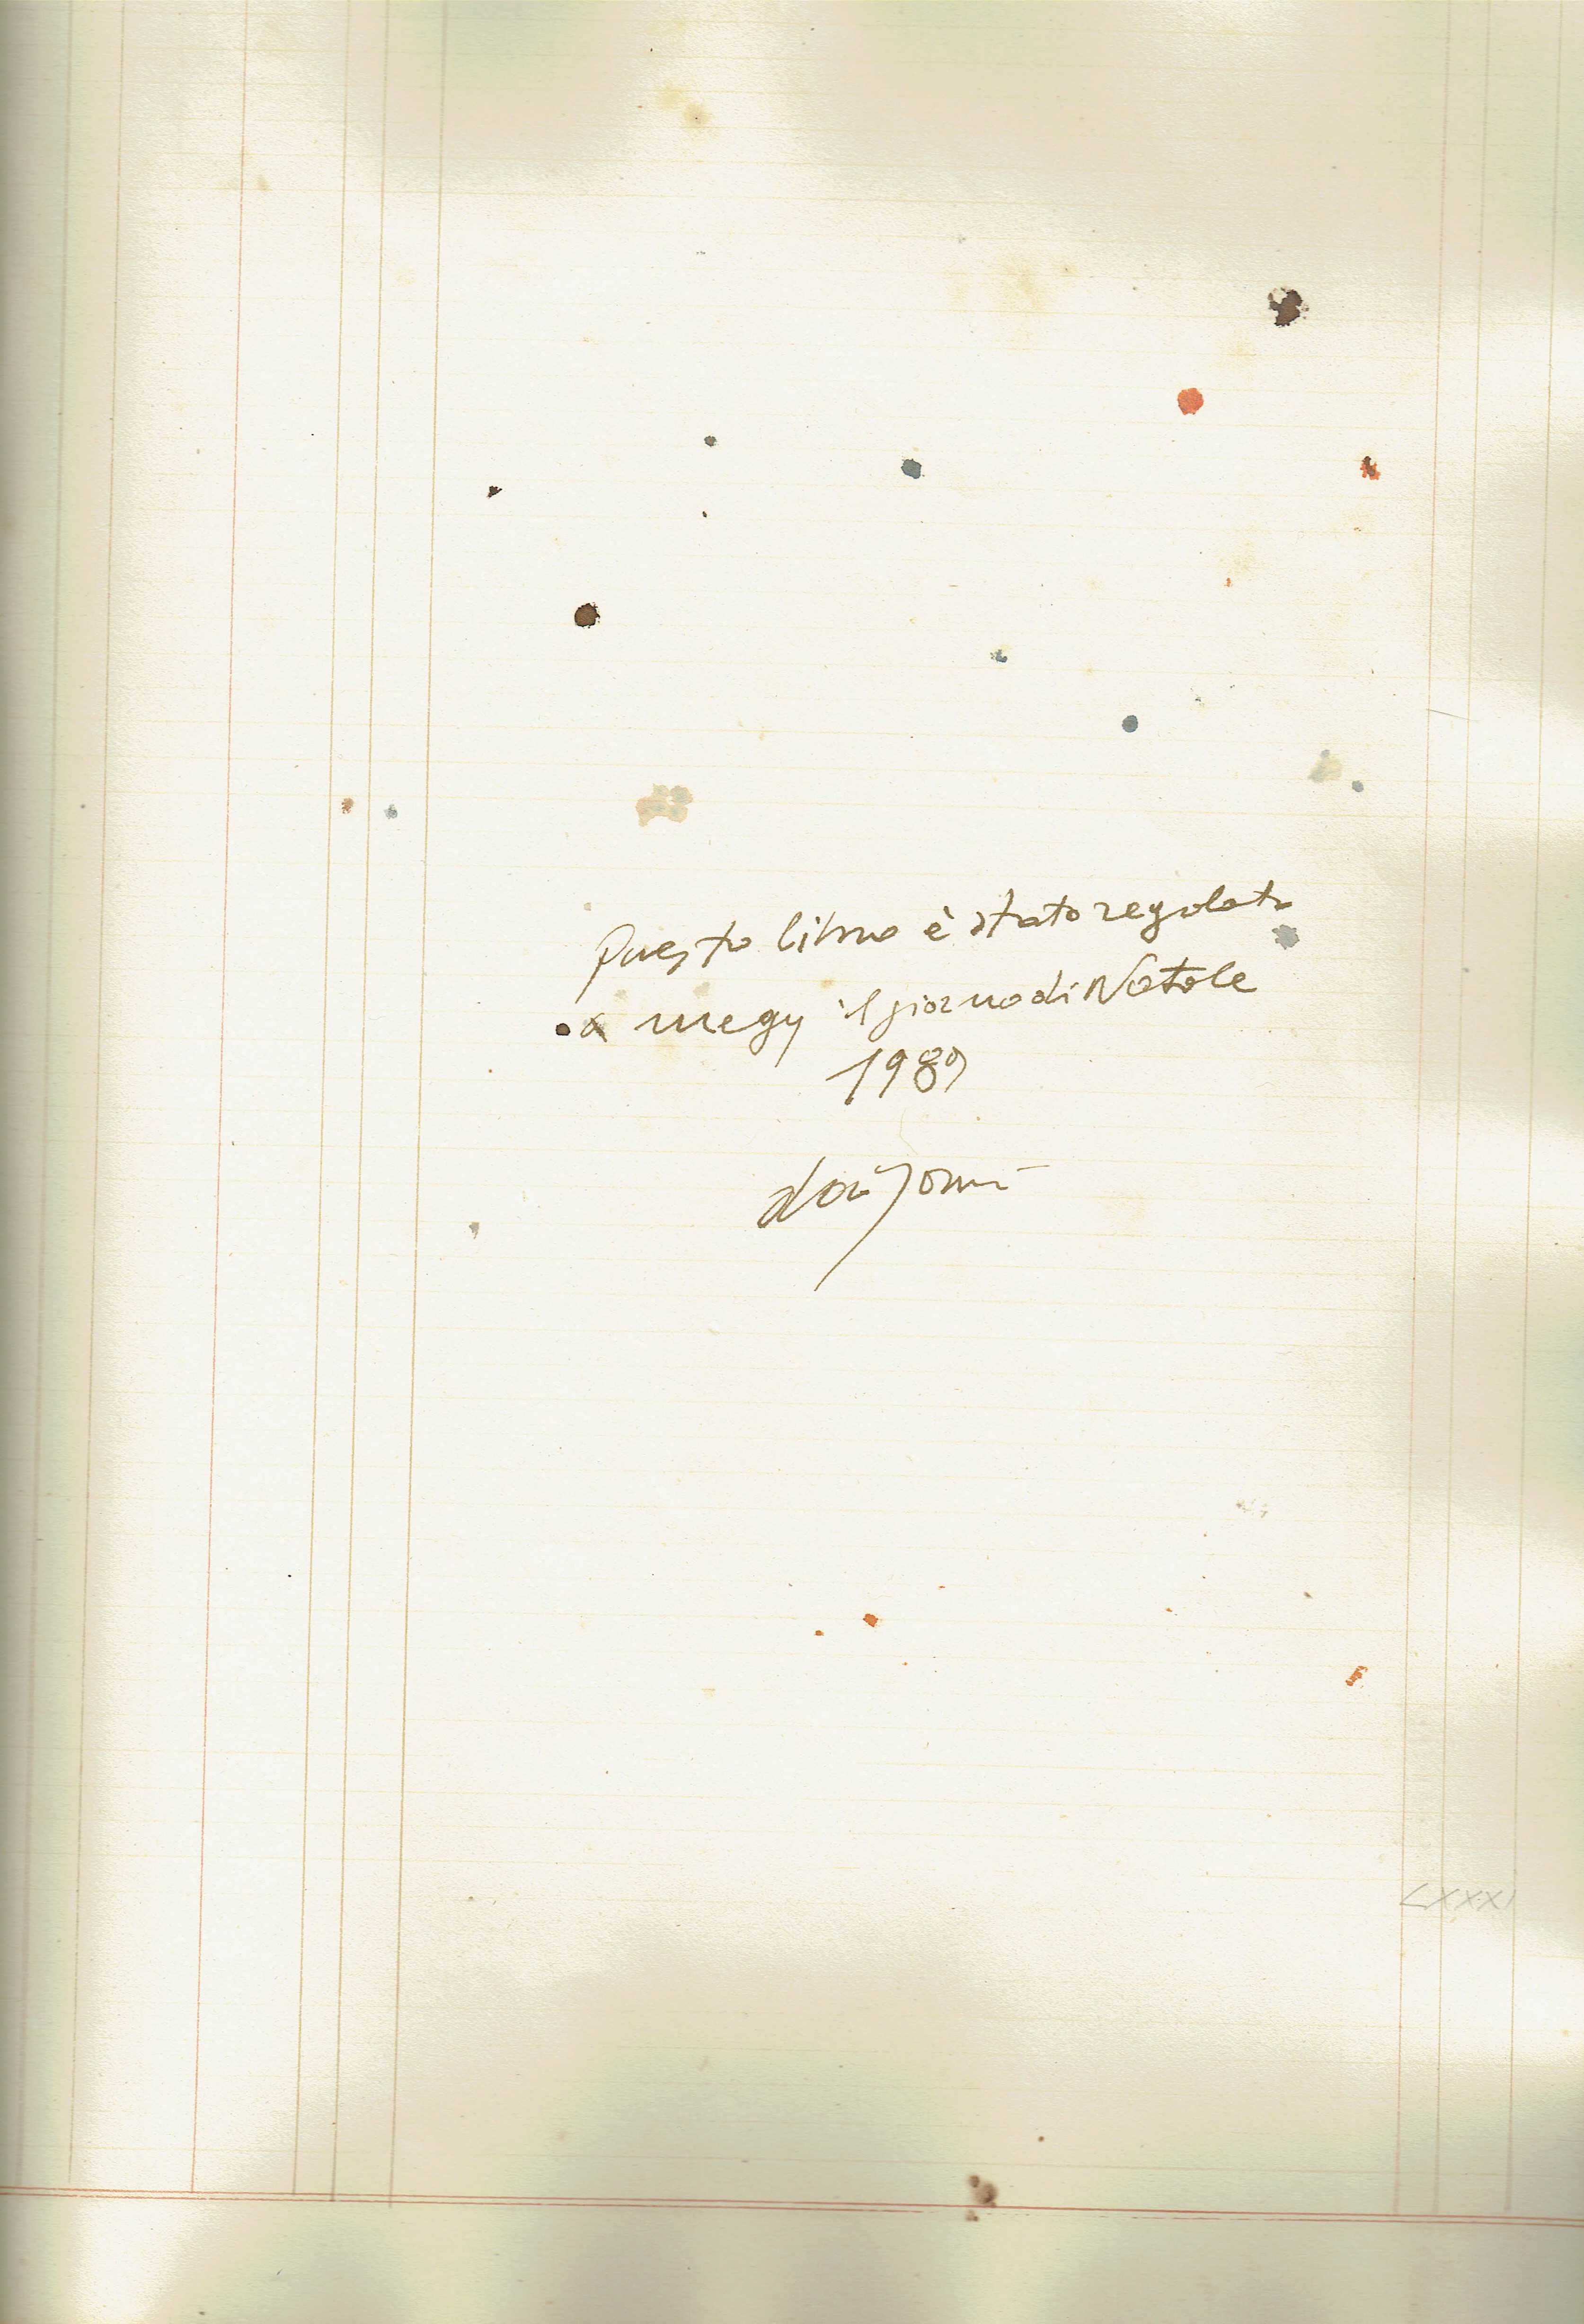 Questo libro è stato regolato
a megy il giorno di Natale
1989
LXXXI